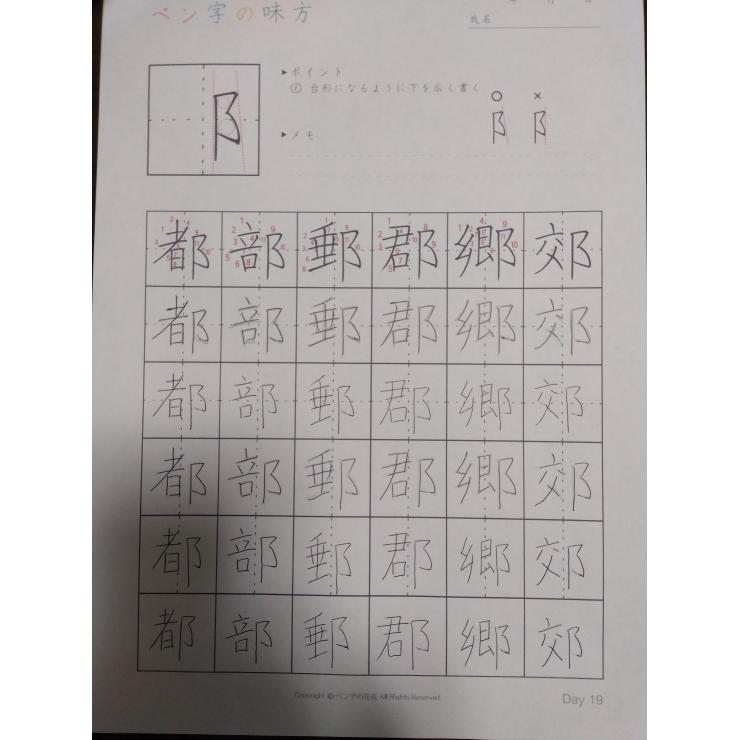 ペン字の味方
氏名
阝
▶ポイント
① 台形になるように下を広く書く
○ ×
阝 阝
▶メモ
都 部 郵 郡 郷 郊
都 部 郵 郡 郷 郊
都 部 郵 郡 郷 郊
都 部 郵 郡 郷 郊
都 部 郵 郡 郷 郊
都 部 郵 郡 郷 郊
Copyright © ペン字の花道 All Rights Reserved.
Day 19